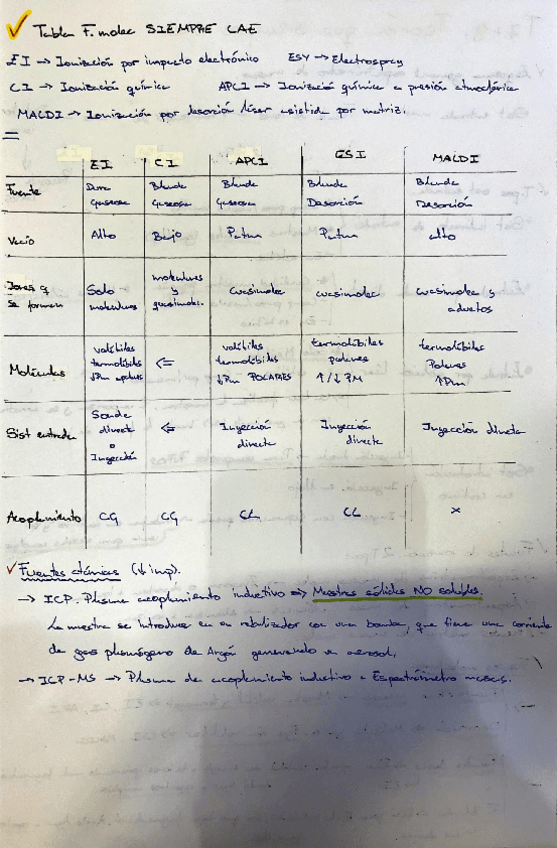 Tabla F. molec SIEMPRE CAE
EI → Ionización por impacto electrónico ESY → Electrospray
CI → Ionización química APCI → Ionización química a presión atmosférica
MALDI → Ionización por desorción láser asistida por matriz.
EI CI APCI ESI MALDI
Fuente Dura Gaseosa Blanda Gaseosa Blanda Gaseosa Blanda Desorción Blanda Desorción
Vacío Alto Bajo Patm Patm alto
Iones q se forman Solo moleculares moleculares y quasimolec. cuasimolec cuasimolec cuasimolec y aductos
Moléculas volátiles termolábiles ↓Pm apolares ⇐ volátiles termolábiles ↓Pm POLARES termolábiles polares ↑/↓ PM termolábiles Polares ↑Pm
Sist entrada Sonda directa o Inyección ⇐ Inyección directa Inyección directa Inyección directa
Acoplamiento CG CG CL CL x
Fuentes atómicas (↓ imp).
→ ICP. Plasma acoplamiento inductivo ⇒ Muestras sólidas NO solubles
La muestra se introduce en un nebulizador con una bomba, que tiene una corriente
de gas plasmógeno de Argón generando un aerosol.
→ ICP-MS → Plasma de acoplamiento inductivo + Espectrómetro masas.